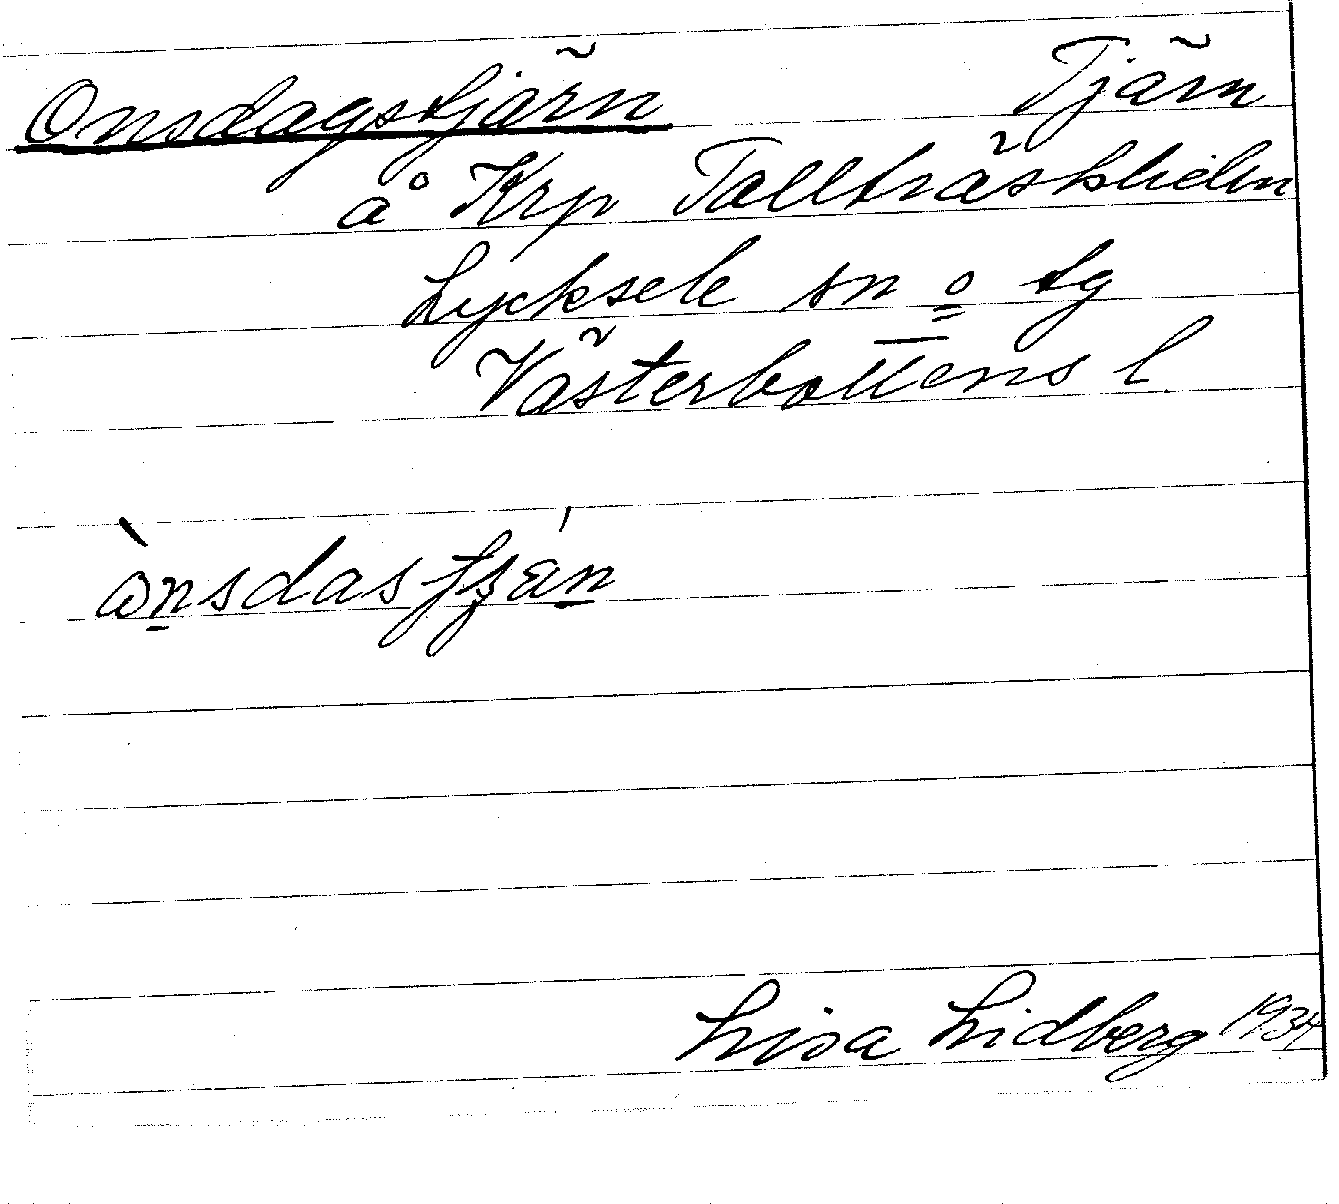 Onsdagstjärn Tjärn
å Krp Tallträskliden
Lycksele sn o tg
Västerbottens l
Lisa Lidberg 1934